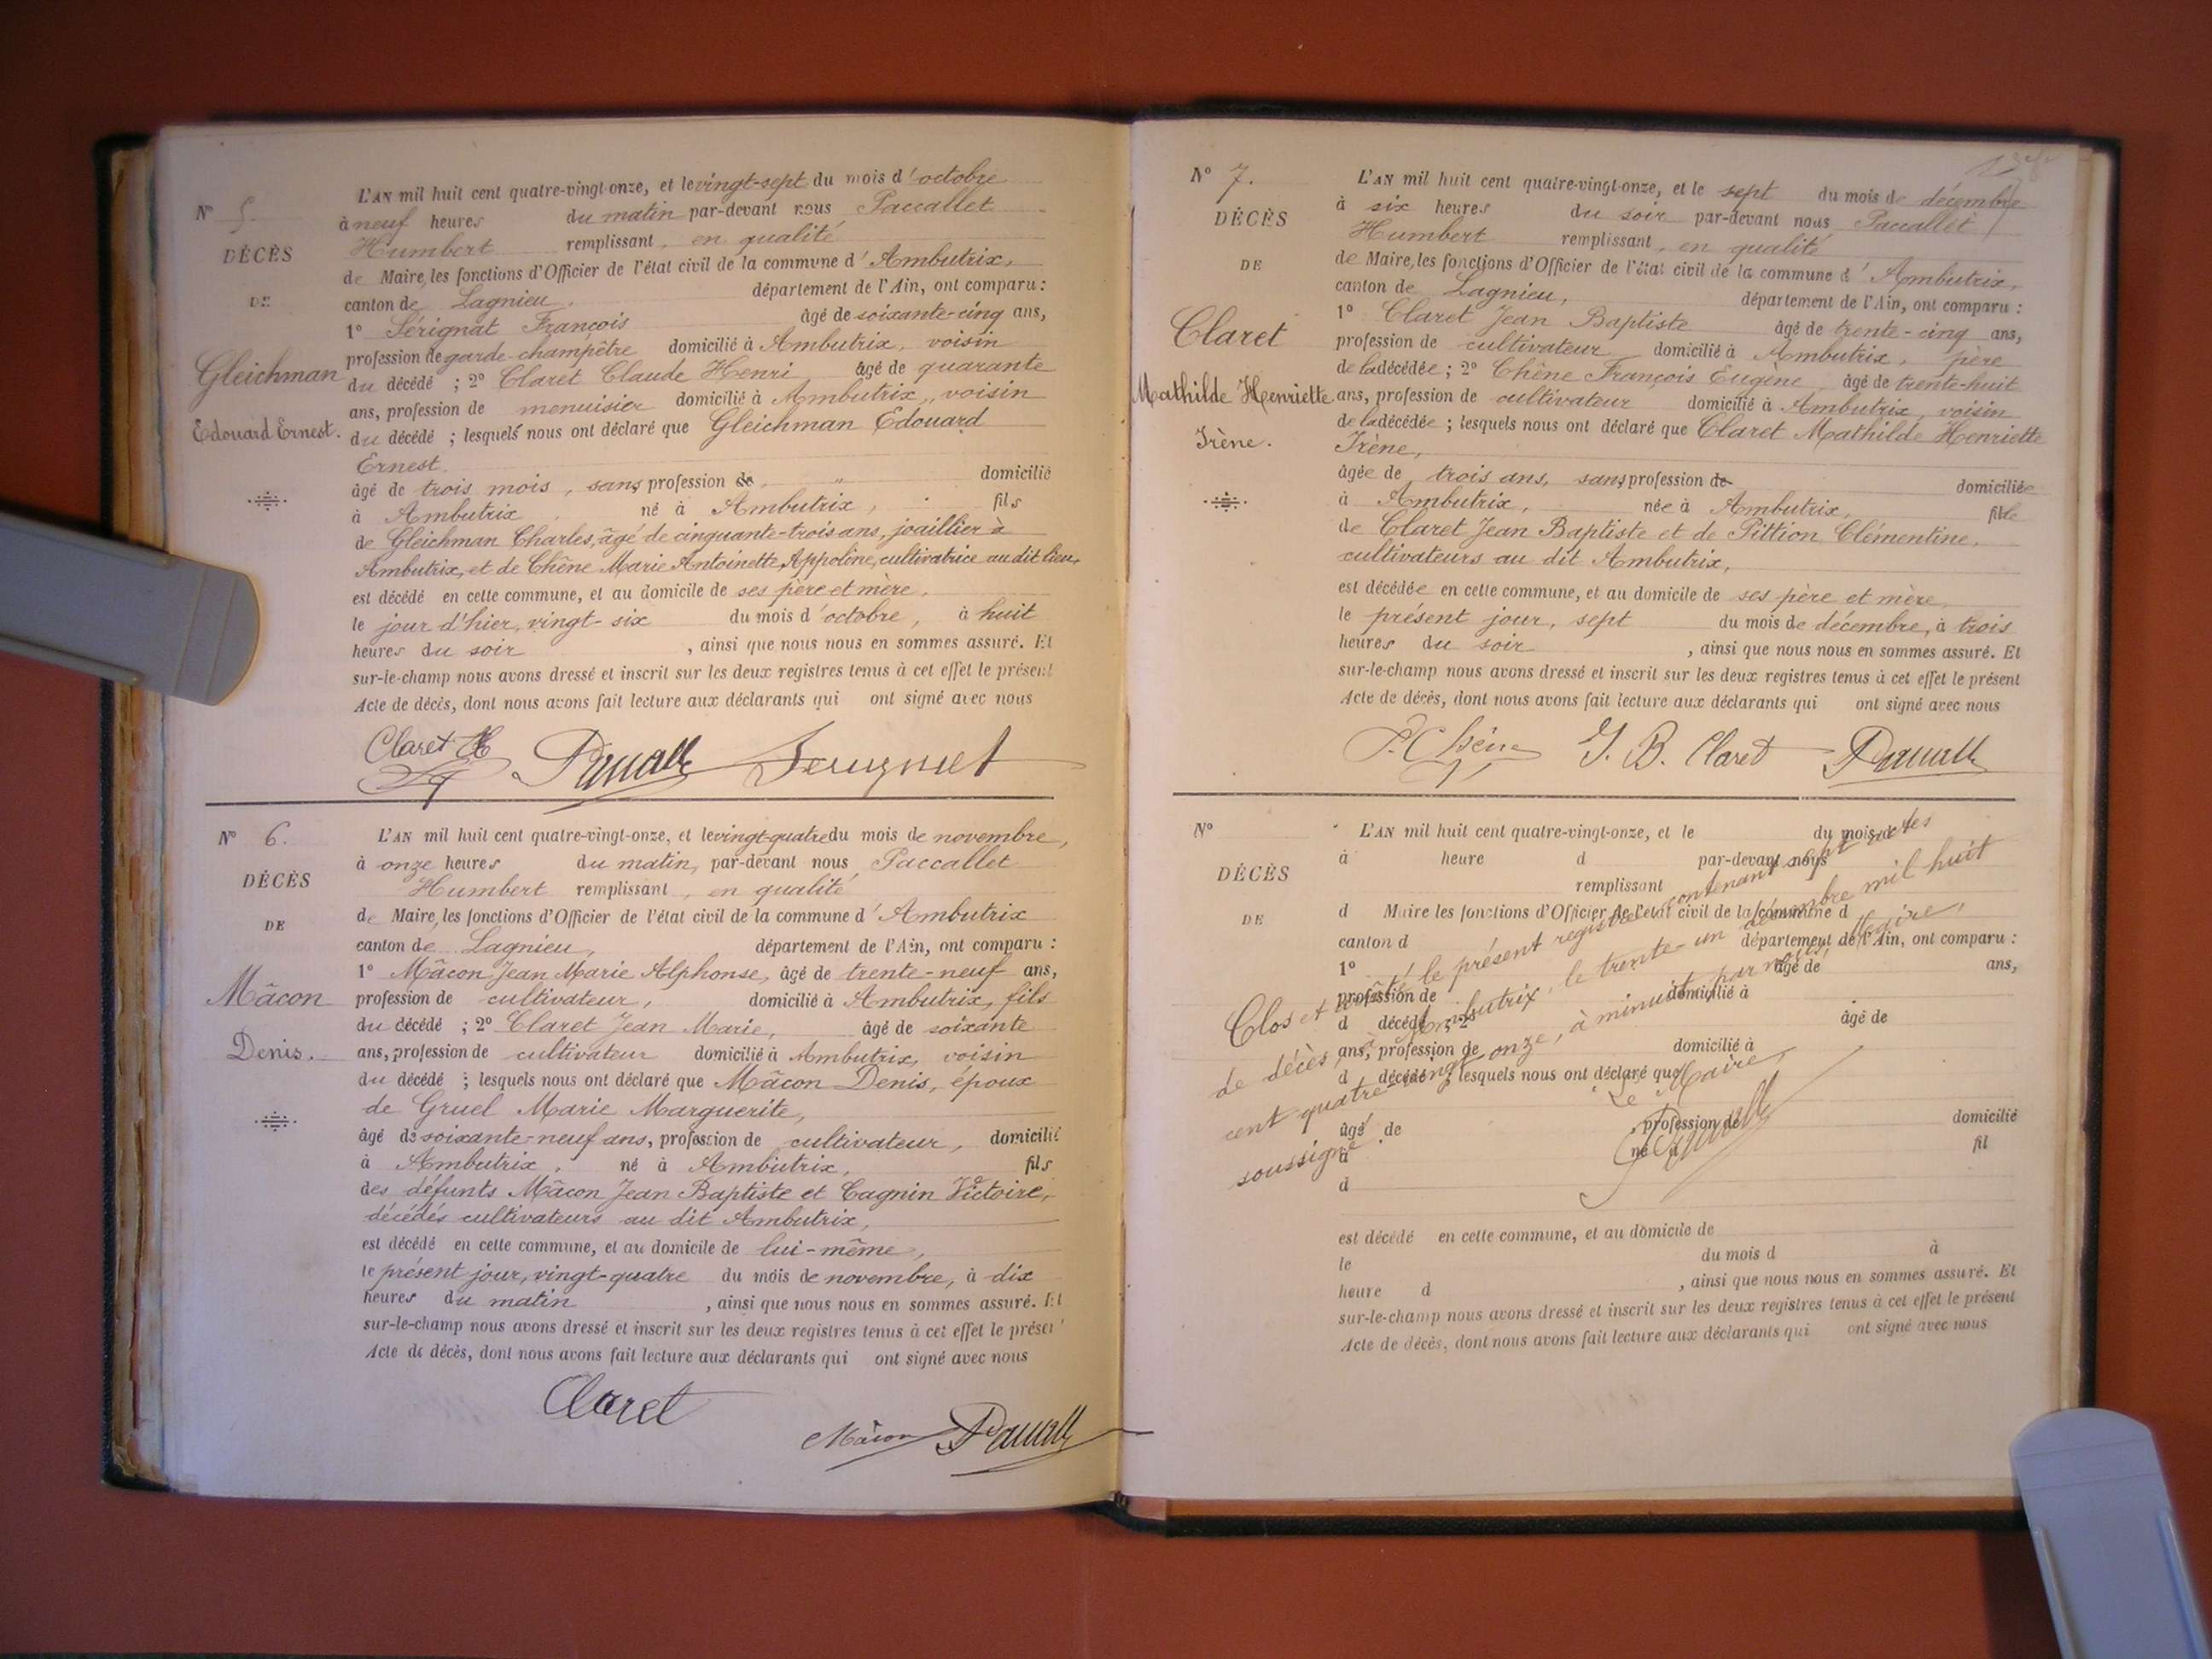 N° 5.
DÉCÈS
DE
Gleichman
Edouard Ernest.
L'AN mil huit cent quatre-vingt-onze, et le vingt-sept du mois d'octobre
à neuf heures du matin par-devant nous Paccallet
Humbert remplissant, en qualité
de Maire, les fonctions d'Officier de l'état civil de la commune d'Ambutrix,
canton de Lagnieu, département de l'Ain, ont comparu :
1° Sérignat François âgé de soixante-cinq ans,
profession de garde-champêtre domicilié à Ambutrix, voisin
du décédé ; 2° Claret Claude Henri âgé de quarante
ans, profession de menuisier domicilié à Ambutrix, voisin
du décédé ; lesquels nous ont déclaré que Gleichman Edouard
Ernest.
âgé de trois mois, sans profession de " domicilié
à Ambutrix né à Ambutrix, fils
de Gleichman Charles, âgé de cinquante-trois ans, joaillier à
Ambutrix, et de Chêne Marie Antoinette Appoline, cultivatrice au dit lieu,
est décédé en cette commune, et au domicile de ses père et mère,
le jour d'hier, vingt-six du mois d'octobre, à huit
heures du soir, ainsi que nous nous en sommes assuré. Et
sur-le-champ nous avons dressé et inscrit sur les deux registres tenus à cet effet le présent
Acte de décès, dont nous avons fait lecture aux déclarants qui ont signé avec nous
Claret H
N° 6.
DÉCÈS
DE
Mâcon
Denis.
L'AN mil huit cent quatre-vingt-onze, et le vingt-quatre du mois de novembre,
à onze heures du matin, par-devant nous Paccallet
Humbert remplissant, en qualité
de Maire, les fonctions d'Officier de l'état civil de la commune d'Ambutrix
canton de Lagnieu, département de l'Ain, ont comparu :
1° Mâcon Jean Marie Alphonse, âgé de trente-neuf ans,
profession de cultivateur, domicilié à Ambutrix, fils
du décédé ; 2° Claret Jean Marie, âgé de soixante
ans, profession de cultivateur domicilié à Ambutrix, voisin
du décédé ; lesquels nous ont déclaré que Mâcon Denis, époux
de Gruel Marie Marguerite,
âgé de soixante-neuf ans, profession de cultivateur, domicilié
à Ambutrix, né à Ambutrix, fils
des défunts Mâcon Jean Baptiste et Cagnin Victoire,
décédés cultivateurs au dit Ambutrix,
est décédé en cette commune, et au domicile de lui-même,
le présent jour, vingt-quatre du mois de novembre, à dix
heures du matin, ainsi que nous nous en sommes assuré. Et
sur-le-champ nous avons dressé et inscrit sur les deux registres tenus à cet effet le présent
Acte de décès, dont nous avons fait lecture aux déclarants qui ont signé avec nous
Claret
Mâcon
N° 7.
DÉCÈS
DE
Claret
Mathilde Henriette
Irène.
L'AN mil huit cent quatre-vingt-onze, et le sept du mois de décembre
à six heures du soir par-devant nous Paccallet
Humbert remplissant, en qualité
de Maire, les fonctions d'Officier de l'état civil de la commune d'Ambutrix,
canton de Lagnieu, département de l'Ain, ont comparu :
1° Claret Jean Baptiste âgé de trente-cinq ans,
profession de cultivateur domicilié à Ambutrix, père
de la décédée ; 2° Chêne François Eugène, âgé de trente-huit
ans, profession de cultivateur domicilié à Ambutrix, voisin
de la décédée ; lesquels nous ont déclaré que Claret Mathilde Henriette
Irène,
âgée de trois ans, sans profession de domiciliée
à Ambutrix, née à Ambutrix, fille
de Claret Jean Baptiste et de Pittion Clémentine,
cultivateurs au dit Ambutrix,
est décédée en cette commune, et au domicile de ses père et mère,
le présent jour, sept du mois de décembre, à trois
heures du soir, ainsi que nous nous en sommes assuré. Et
sur-le-champ nous avons dressé et inscrit sur les deux registres tenus à cet effet le présent
Acte de décès, dont nous avons fait lecture aux déclarants qui ont signé avec nous
J. B. Claret
N°
DÉCÈS
DE
L'AN mil huit cent quatre-vingt-onze, et le du mois d
à heure d par-devant nous
remplissant
d Maire les fonctions d'Officier de l'état civil de la commune d
canton d département de l'Ain, ont comparu :
1° âgé de ans,
profession de domicilié à
d décédé ; 2° âgé de
ans, profession de domicilié à
d décédé ; lesquels nous ont déclaré que
âgé de , profession de domicilié
à né à fil
d
est décédé en cette commune, et au domicile de
le du mois d à
heure d , ainsi que nous nous en sommes assuré. Et
sur-le-champ nous avons dressé et inscrit sur les deux registres tenus à cet effet le présent
Acte de décès, dont nous avons fait lecture aux déclarants qui ont signé avec nous
Clos et arrêté le présent registre contenant sept actes
de décès, à Ambutrix, le trente-un décembre mil huit
cent quatre-vingt-onze, à minuit, par nous, Maire,
soussigné.
Le Maire,